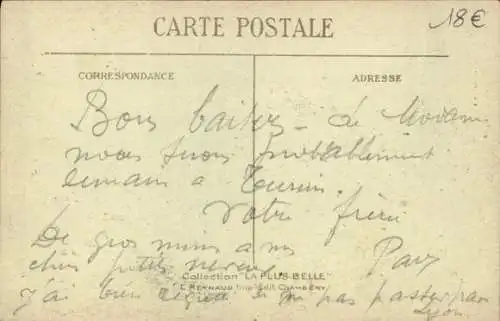 CARTE POSTALE
18€
CORRESPONDANCE
ADRESSE
Bons baisers de Modane
nous irons probablement
demain a Turin.
Votre frère
De gros mimis a nos
chers petits neveux
Collection "LA PLUS BELLE"
E. REYNAUD Imp. Edit. CHAMBÉRY
J'ai bien regretté de pas passer par
Lyon